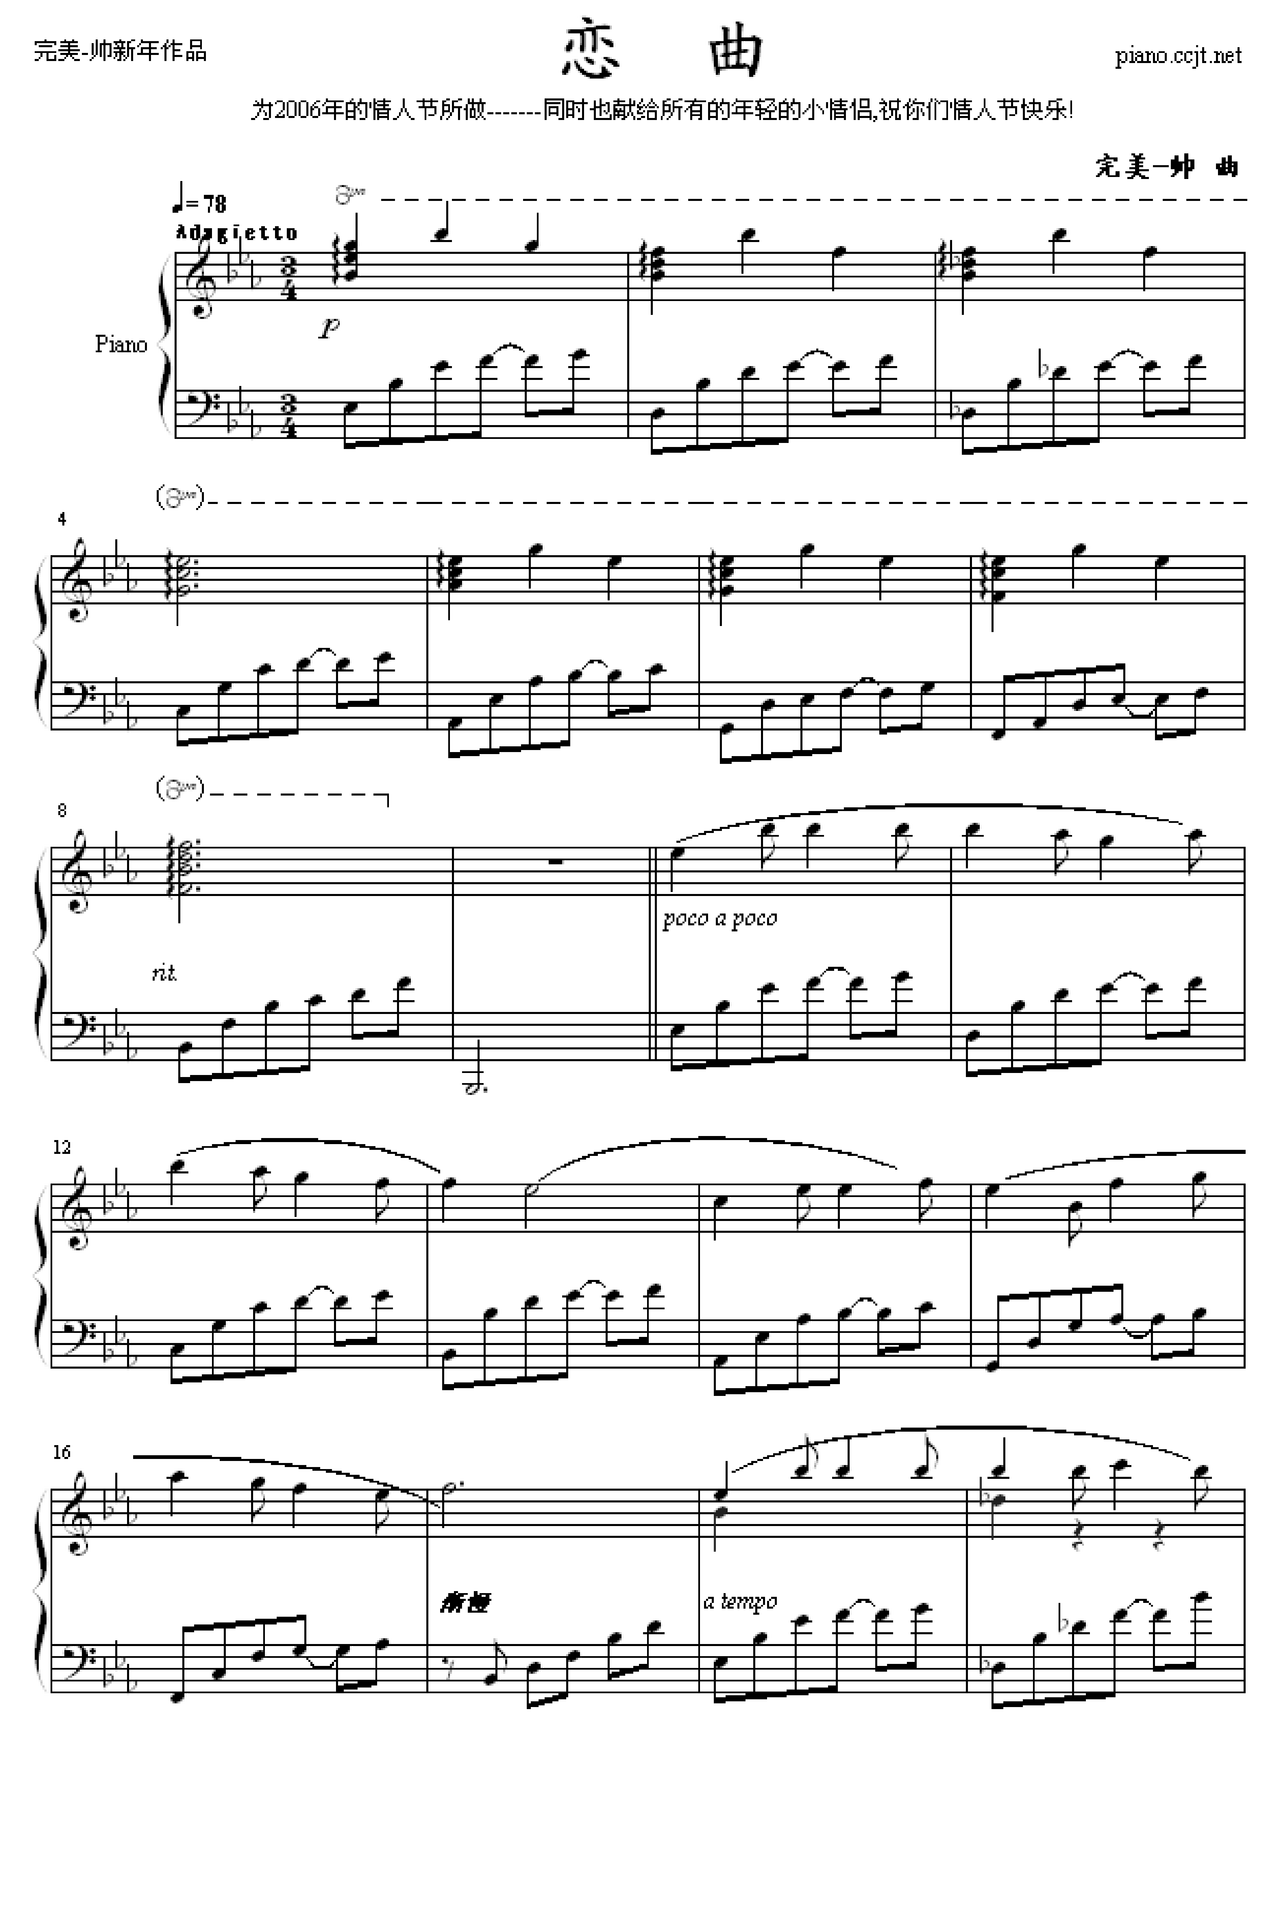 恋 曲
完美-帅新年作品
piano.ccjt.net
为2006年的情人节所做-------同时也献给所有的年轻的小情侣,祝你们情人节快乐!
完美-帅 曲
= 78
Adagietto
8va
3 4
p
Piano
3 4
(8va)
4
(8va)
8
poco a poco
rit.
12
16
渐慢
a tempo